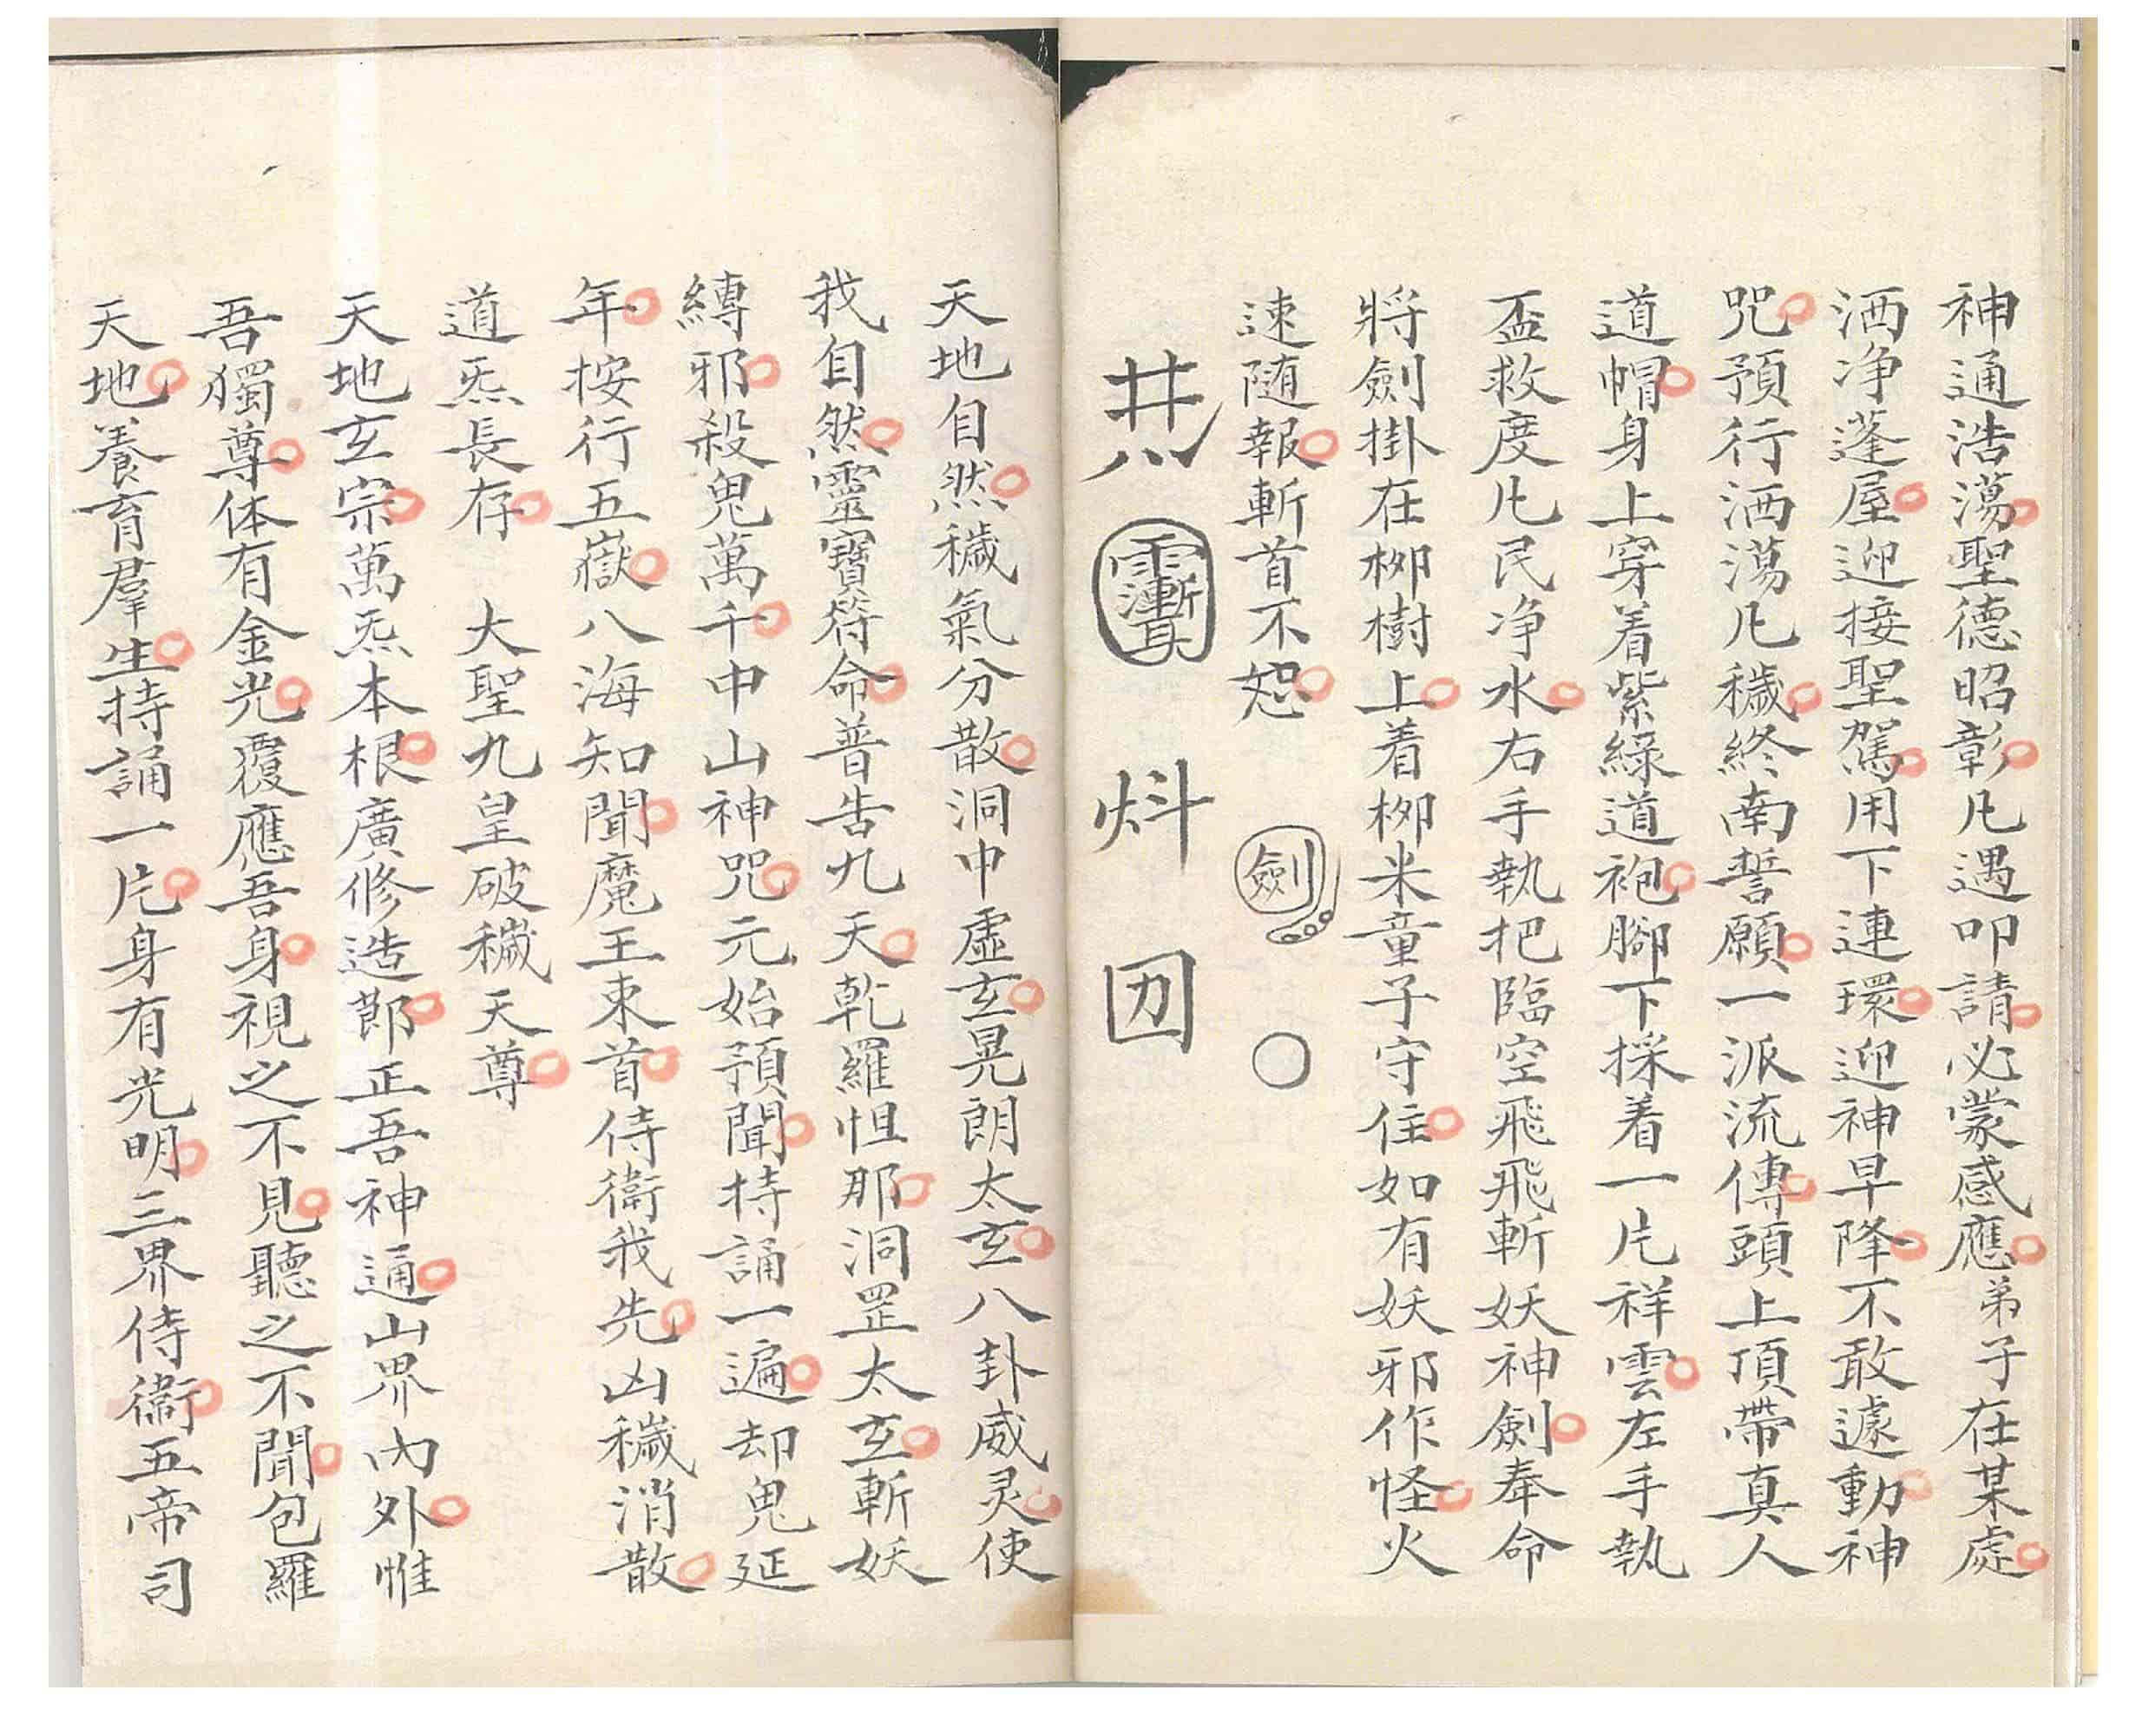 神通浩蕩聖德昭彰凡遇叩請必蒙感應弟子在某處
洒净蓬屋迎接聖駕用下連環迎神早降不敢遽動神
咒預行洒蕩凡穢終南誓願一派流傳頭上頂帶真人
道帽身上穿着紫綠道袍腳下採着一片祥雲左手執
盃救度凡民净水右手執把臨空飛飛斬妖神劍奉命
將劍掛在柳樹上着柳米童子守住如有妖邪作怪火
速随報斬首不恕 劍 〇
天地自然穢氣分散洞中虛玄晃朗太玄八卦威灵使
我自然靈寶符命普告九天乾羅怛那洞罡太玄斬妖
縛邪殺鬼萬千中山神咒元始預聞持誦一遍却鬼延
年按行五嶽八海知聞魔王束首侍衛我先凶穢消散
道炁長存 大聖九皇破穢天尊
天地玄宗萬炁本根廣修造郮正吾神通山界內外惟
吾獨尊体有金光覆應吾身視之不見聽之不聞包羅
天地養育羣生持誦一片身有光明三界侍衛五帝司